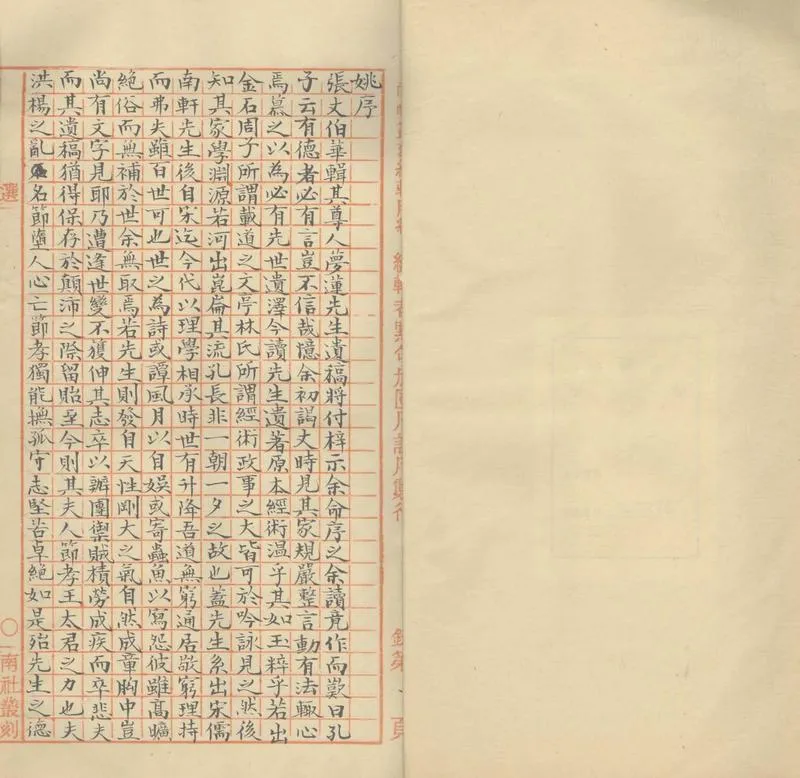 姚序
張丈伯華輯其尊人夢蓮先生遺稿將付梓示余命序之余讀竟作而歎曰孔
子云有德者必有言豈不信哉憶余初謁丈時見其家規嚴整言動有法輒心
焉慕之以為必有先世遺澤今讀先生遺著原本經術温乎其如玉粹乎若出
金石周子所謂載道之文亭林氏所謂經術政事之大皆可於吟詠見之然後
知其家學淵源若河出崑崙其流孔長非一朝一夕之故也蓋先生系出宋儒
南軒先生後自宋迄今代以理學相承時世有升降吾道無窮通居敬窮理持
而弗失雖百世可也世之為詩或譚風月以自娛或寄蟲魚以寫怨彼雖高曠
絕俗而無補於世余無取焉若先生則發自天性剛大之氣自然成章胸中豈
尚有文字見耶乃遭逢世變不獲伸其志卒以辦團禦賊積勞成疾而卒悲夫
而其遺稿猶得保存於顛沛之際留貽至今則其夫人節孝王太君之力也夫
洪楊之亂名節墮人心亡節孝獨能撫孤守志堅苦卓絕如是殆先生之德
選
〇
南社叢刻